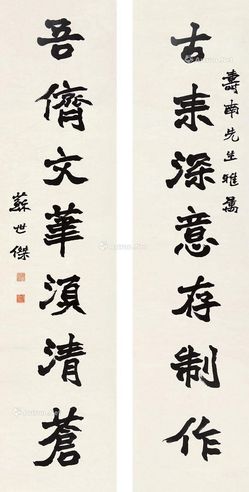 壽南先生雅屬
古来深意存制作
吾儕文華湏清蒼
蘇世傑